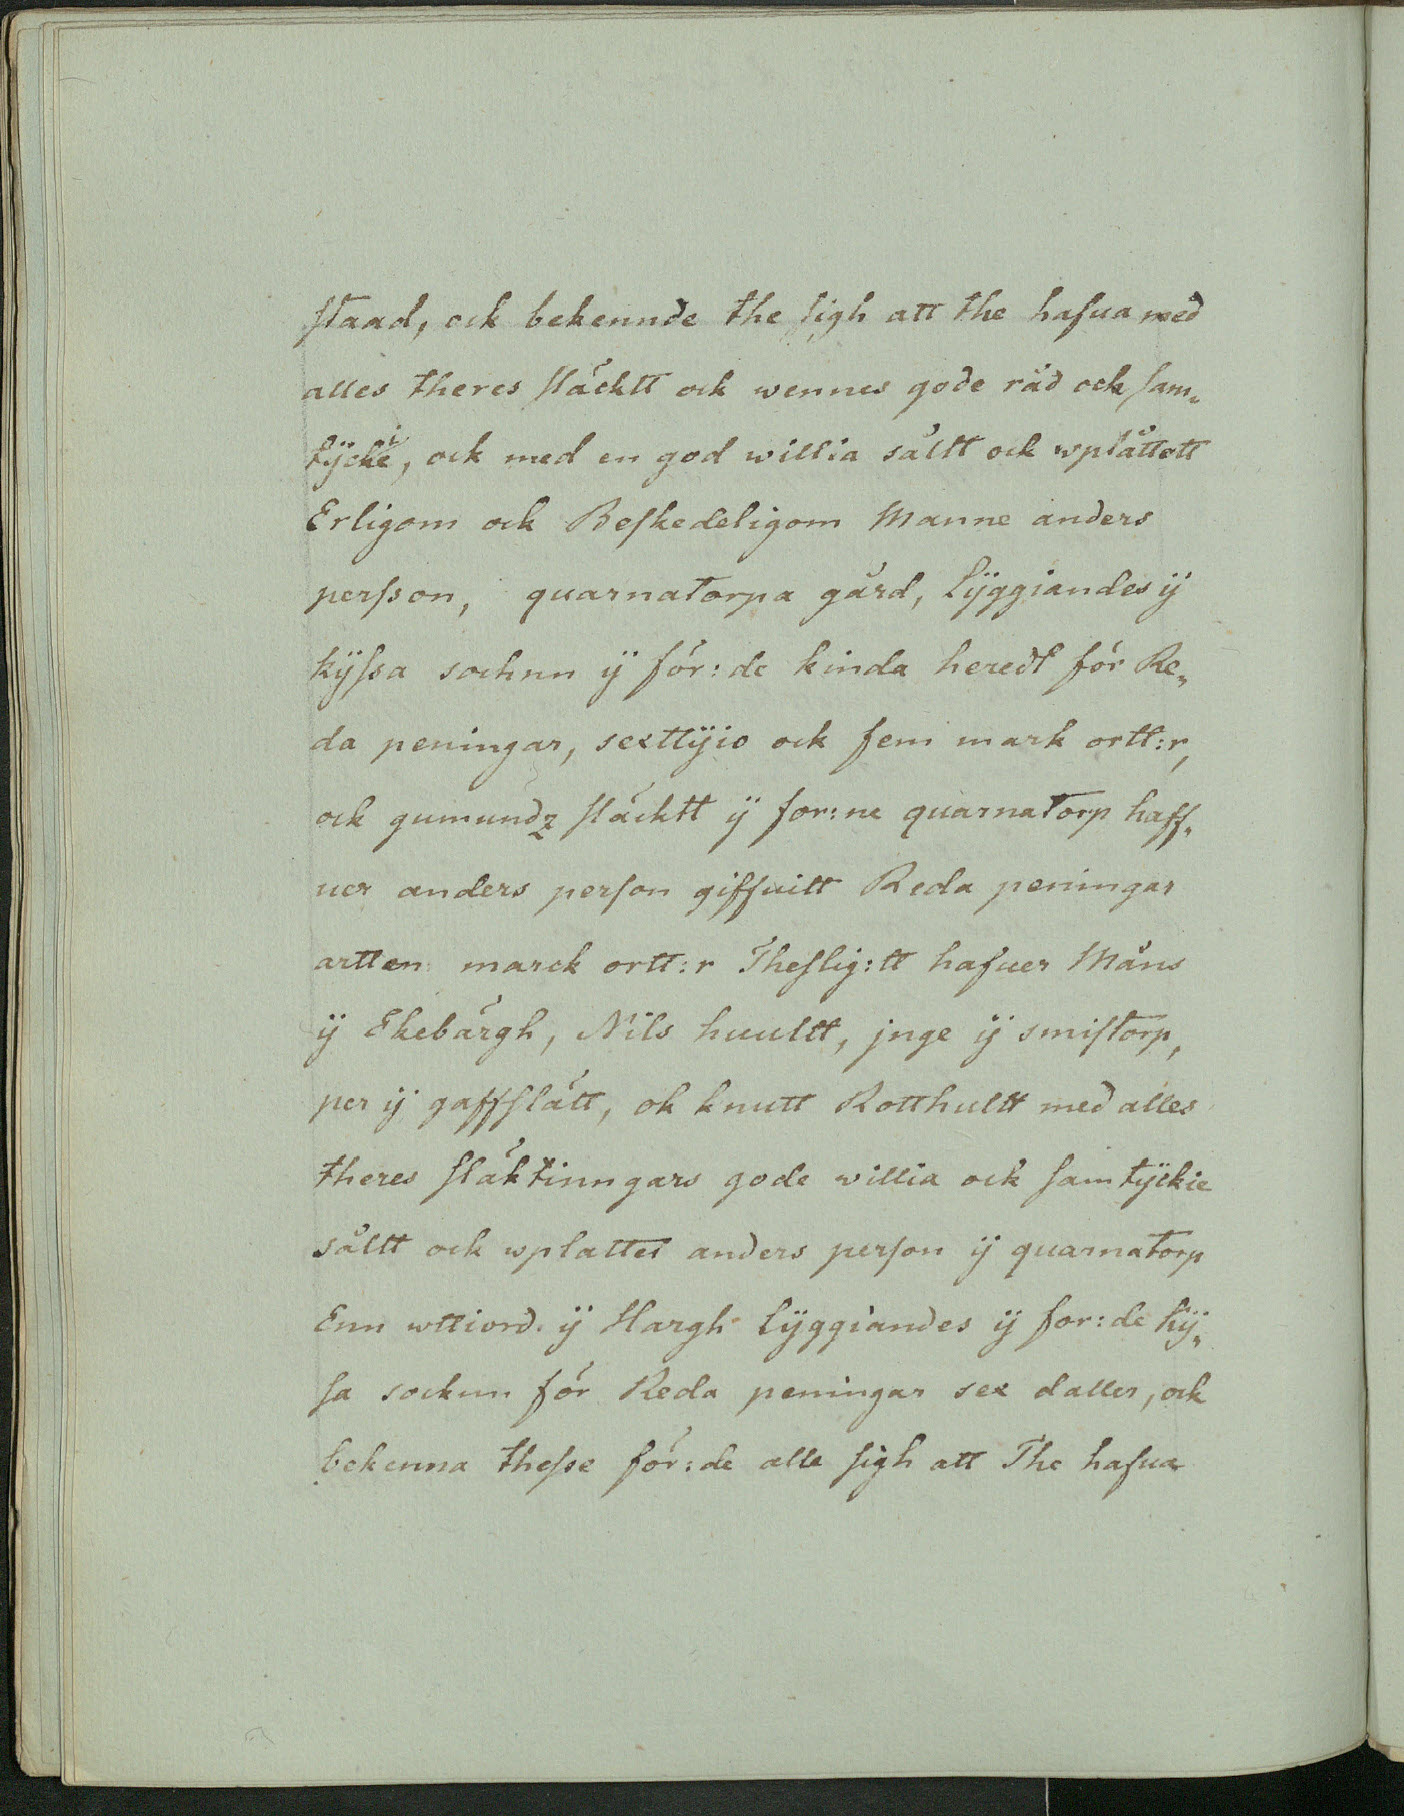 staad, ock bekennde the sigh att the hafua med
alles theres släcktt ock wennes gode råd ock sam„
tÿckie, ock med en god willia såltt ock wplåttett
Erligom ock Beskedeligom Manne anders
persson, quarnatorpa gård, lÿggiandes ÿ
kÿssa sochnn ÿ för:de kinda heredt för Re„
da peningar, sexttÿio ock fem mark ortt:r,
ock gumundz släcktt ÿ for:ne quarnatorp haff„
uer anders person giffuitt Reda peningar
artten marck ortt:r Theslig:tt hafuer Måns
ÿ Ekebärgh, Nils huultt, jnge ÿ smistorp,
per ÿ gaffslätt, ok knutt Rotthultt med alles
theres släktinngars gode willia ock samtÿckie
såltt ock wplattet anders person ÿ quarnatorp
Enn wttiord. ÿ Hargh lÿggiandes ÿ for:de kÿ„
sa socknn för Reda peningar sex daller, ock
bekenna thesse för:de alle sigh att The hafua